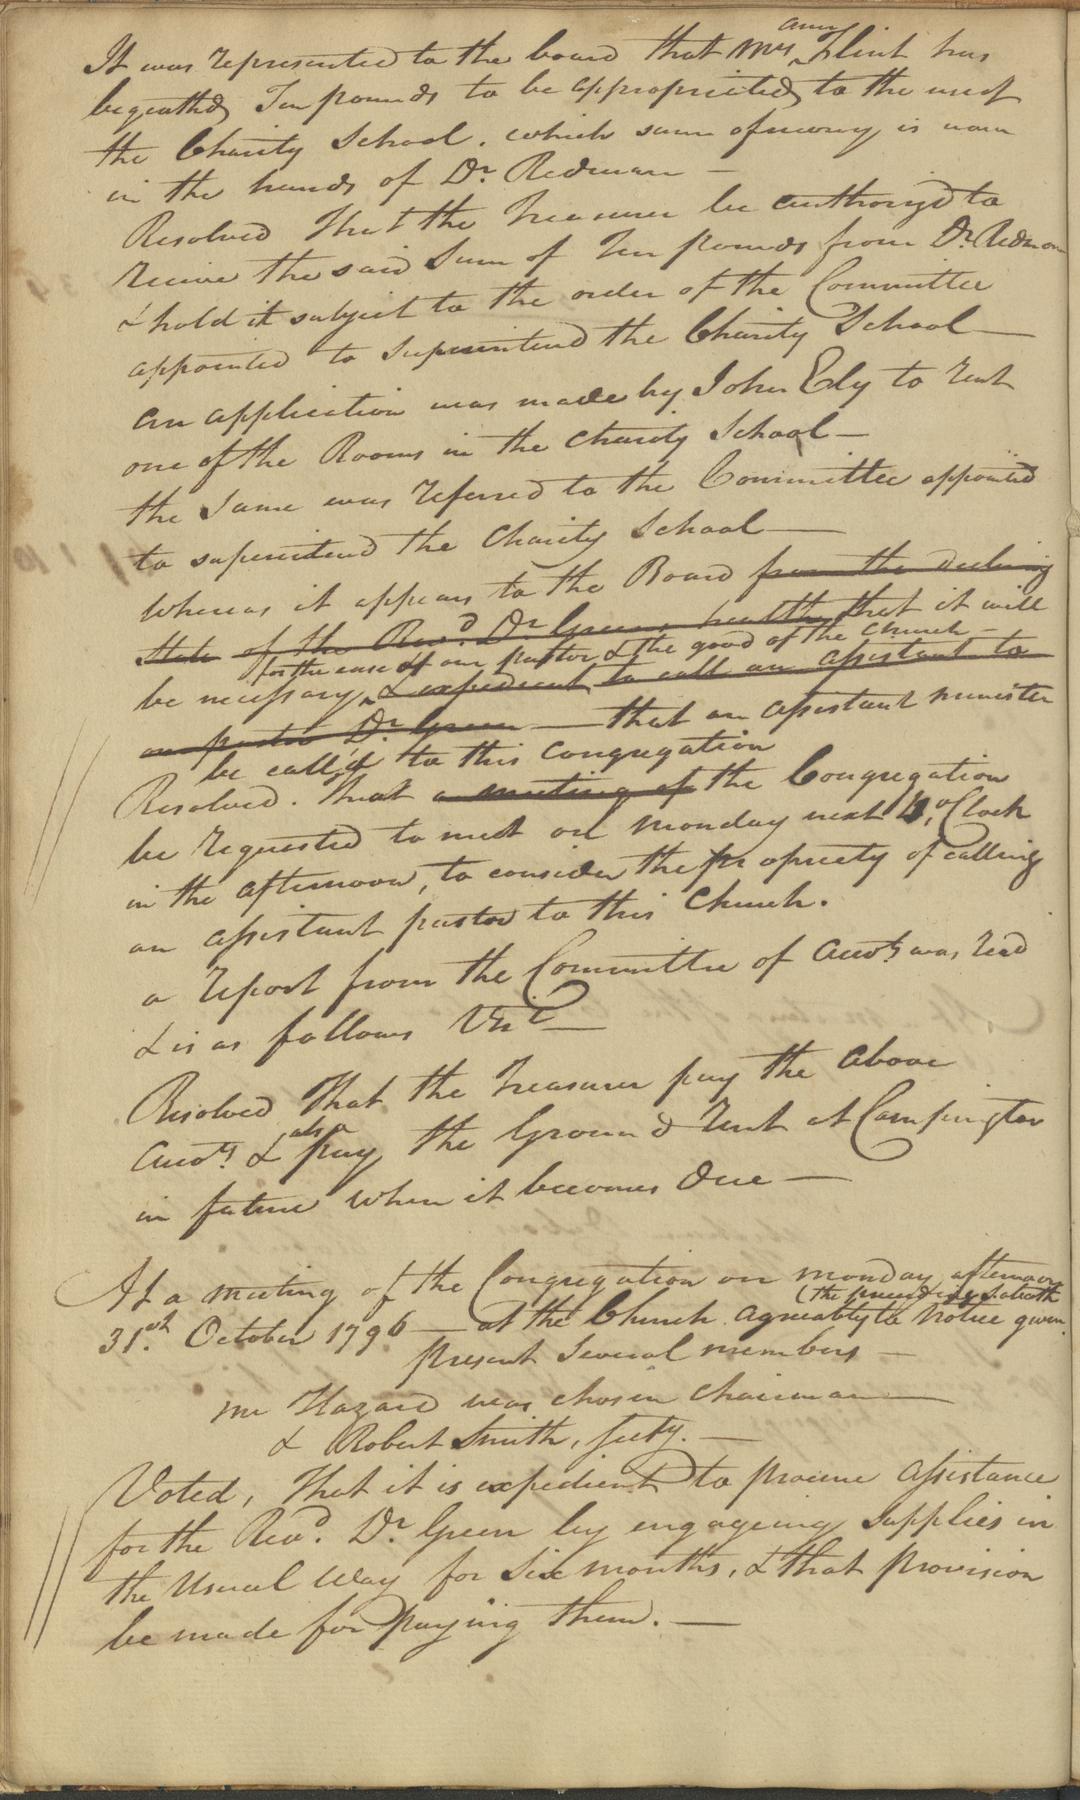 It was represented to the board that Mrs Ann Flint has
beqeathd Ten pounds to be appropriated to the use of
the Charity School. which sum of money is now
in the hands of Dr. Redman —
Resolved That the Treasurer be authorized to
receive the said Sum of Ten pounds from Dr. Redman
& hold it subject to the order of the Committee
appointed to Superintend the Charity School —
an application was made by John Ely to rent
one of the Rooms in the Charity School —
the Same was referred to the Committee appointed
to superintend the Charity School —
Whereas it appears to the Board from the declining
State of the Revd. Dr Greens health that it will
for the ease of our pastor & the good of the Church —
be necessary & expedient to call an assistant to
our pastor Dr. Green — that an assistant minister
be call'd to this congregation
Resolved. That a meeting of the Congregation
be requested to meet on monday next, oClock
in the afternoon, to consider the propriety of calling
an assistant pastor to this Church.
a report from the Committee of Accots was read
& is as follows Vizt —
Resolved That the Treasurer pay the above
Accots. & also pay the Ground Rent at Campington
in future when it becomes due —
At a meeting of the Congregation on monday afternoon
31st. October 1796 — at the Church agreeably to Notice given
(the preceding Sabbath
present Several members —
Mr Hazard was chosen Chairman —
& Robert Smith, Secty. —
Voted, That it is expedient to procure assistance
for the Revd. Dr Green by engageing Supplies in
the Usual Way for Six months, & that provision
be made for paying them. —